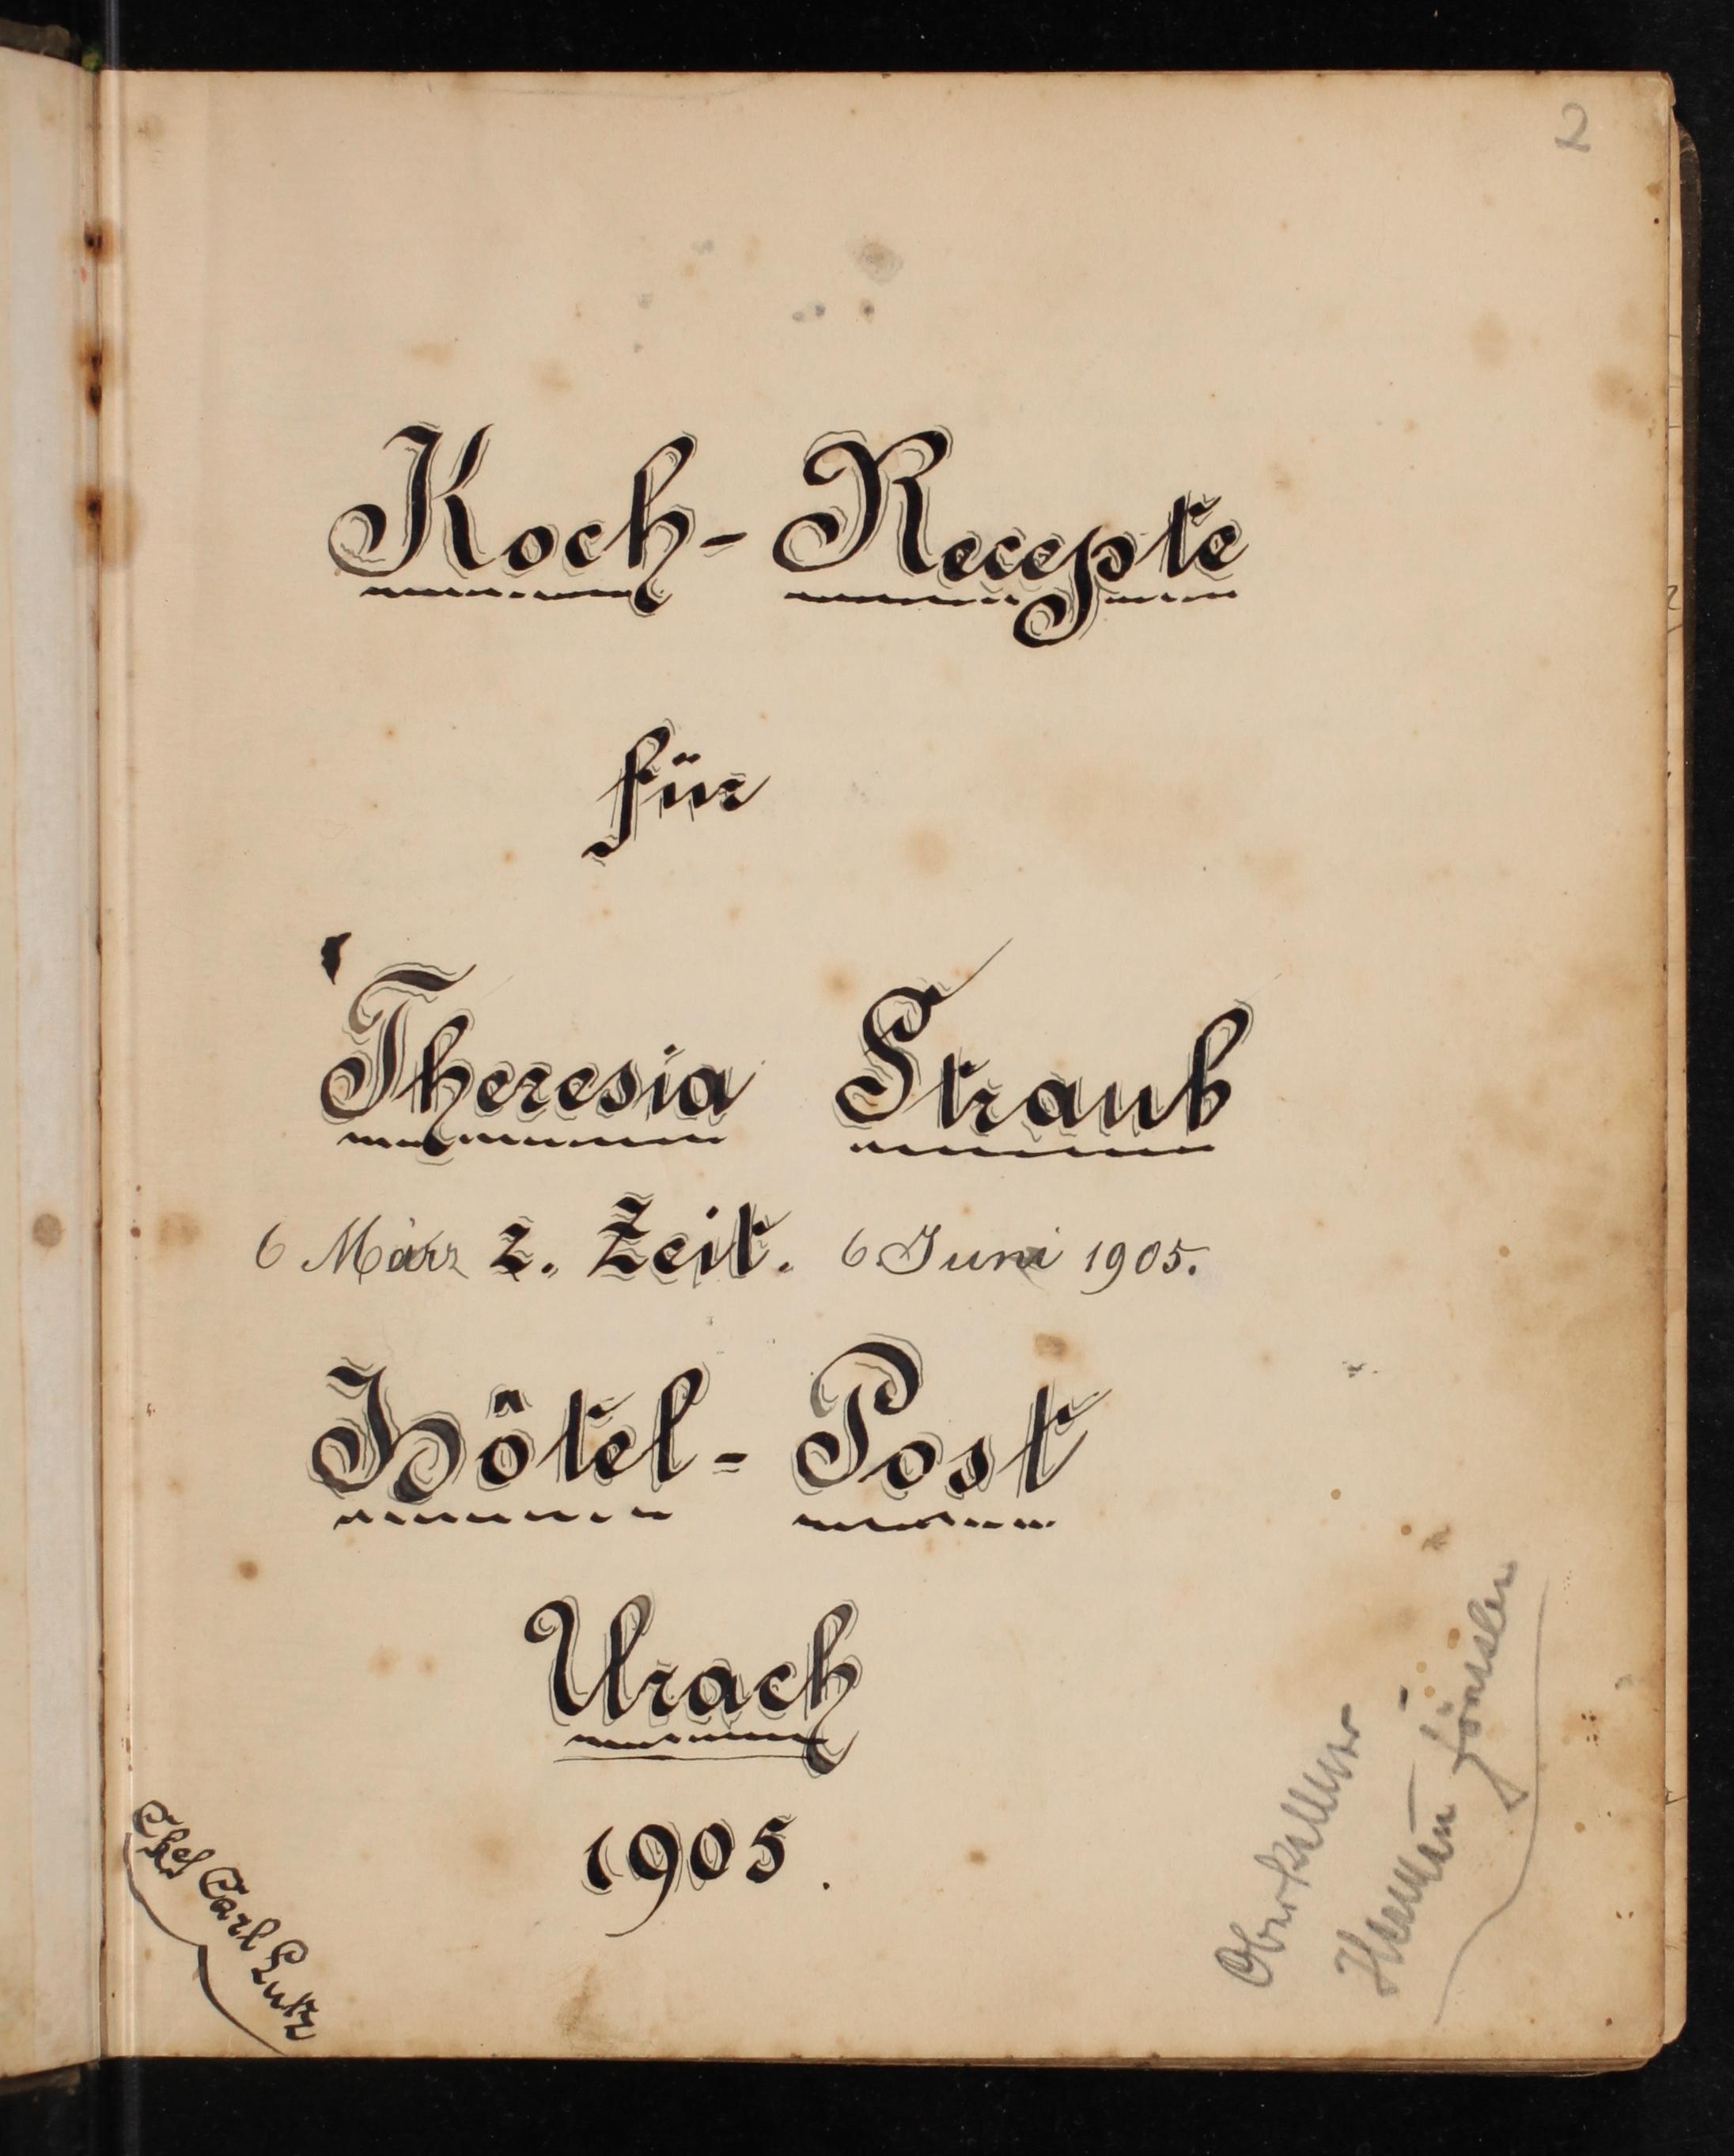 2
Koch-Recepte
für
Theresia Straub
6 März z. Zeit. 6 Juni 1905.
Hôtel-Post
Urach
1905.
Chef Carl Lutz
Oberkellner
Hermann